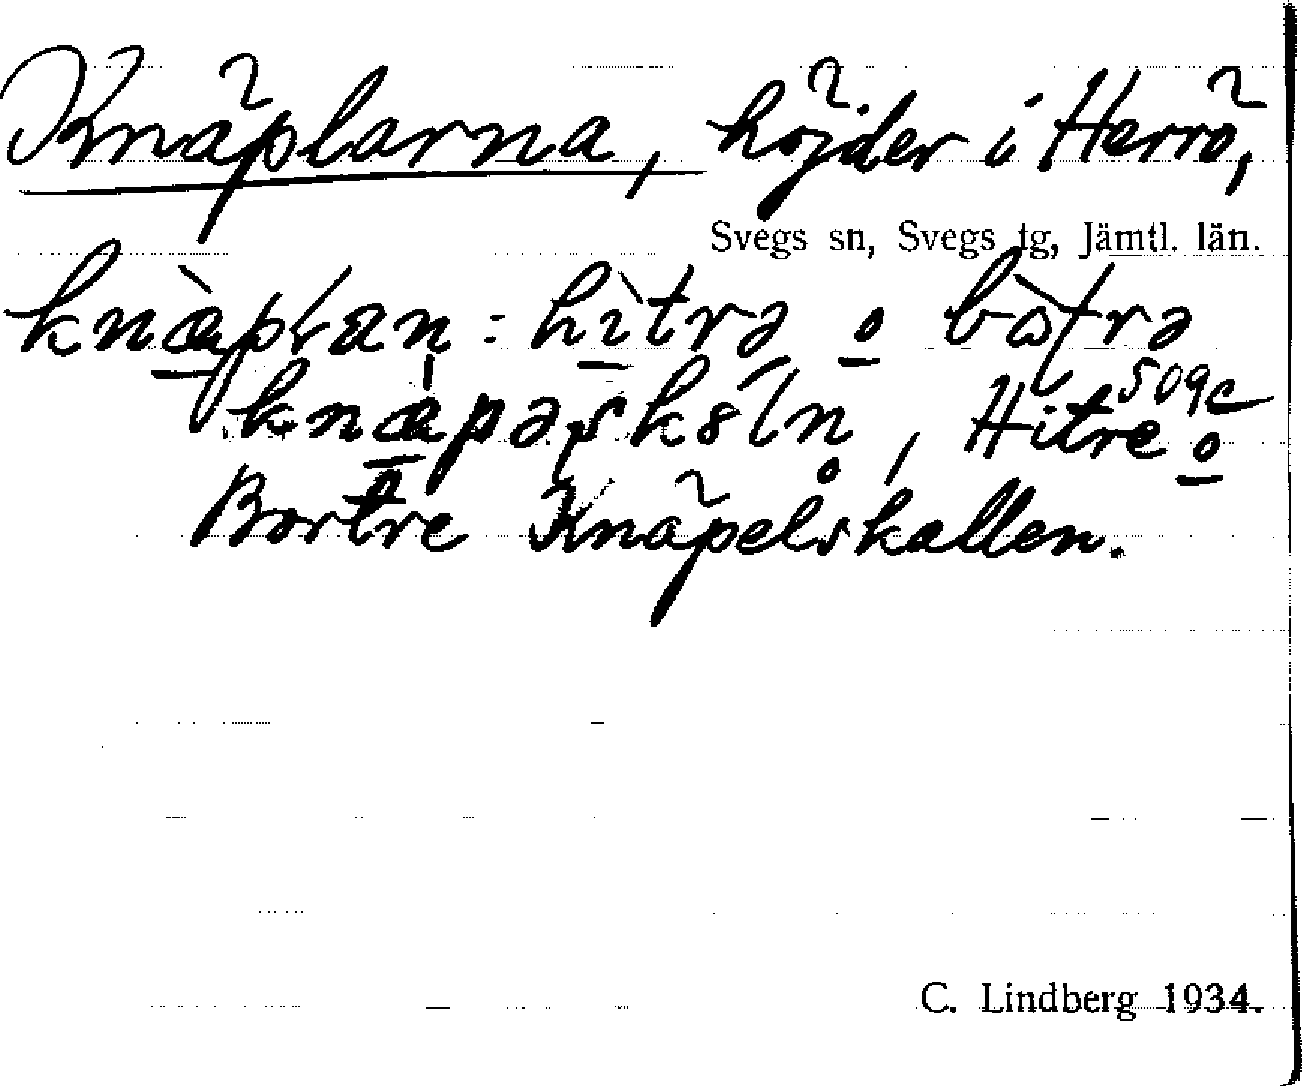 Knäplarna, höjder i Herrö,
Svegs sn, Svegs tg, Jämtl. län.
knæ̀plan: hìtrə o bòtrə
509c
knæ̀pəlskāln, Hitre o
Bortre Knäpelskallen.
C. Lindberg 1934.